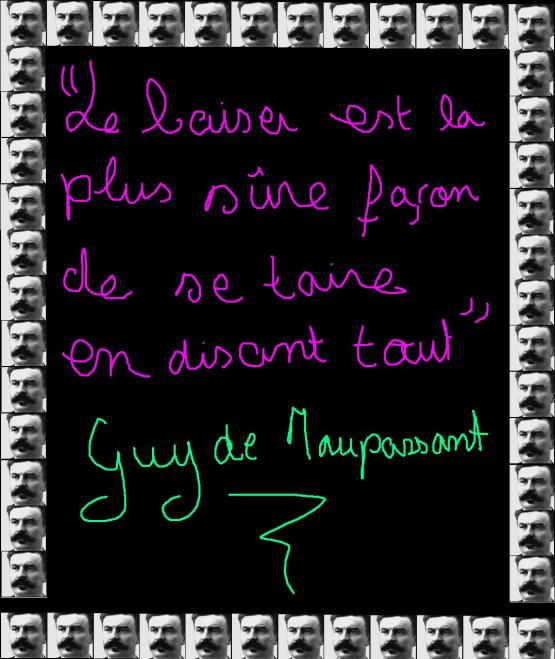 "Le baiser est la
plus sûre façon
de se taire
en disant tout"
Guy de Maupassant